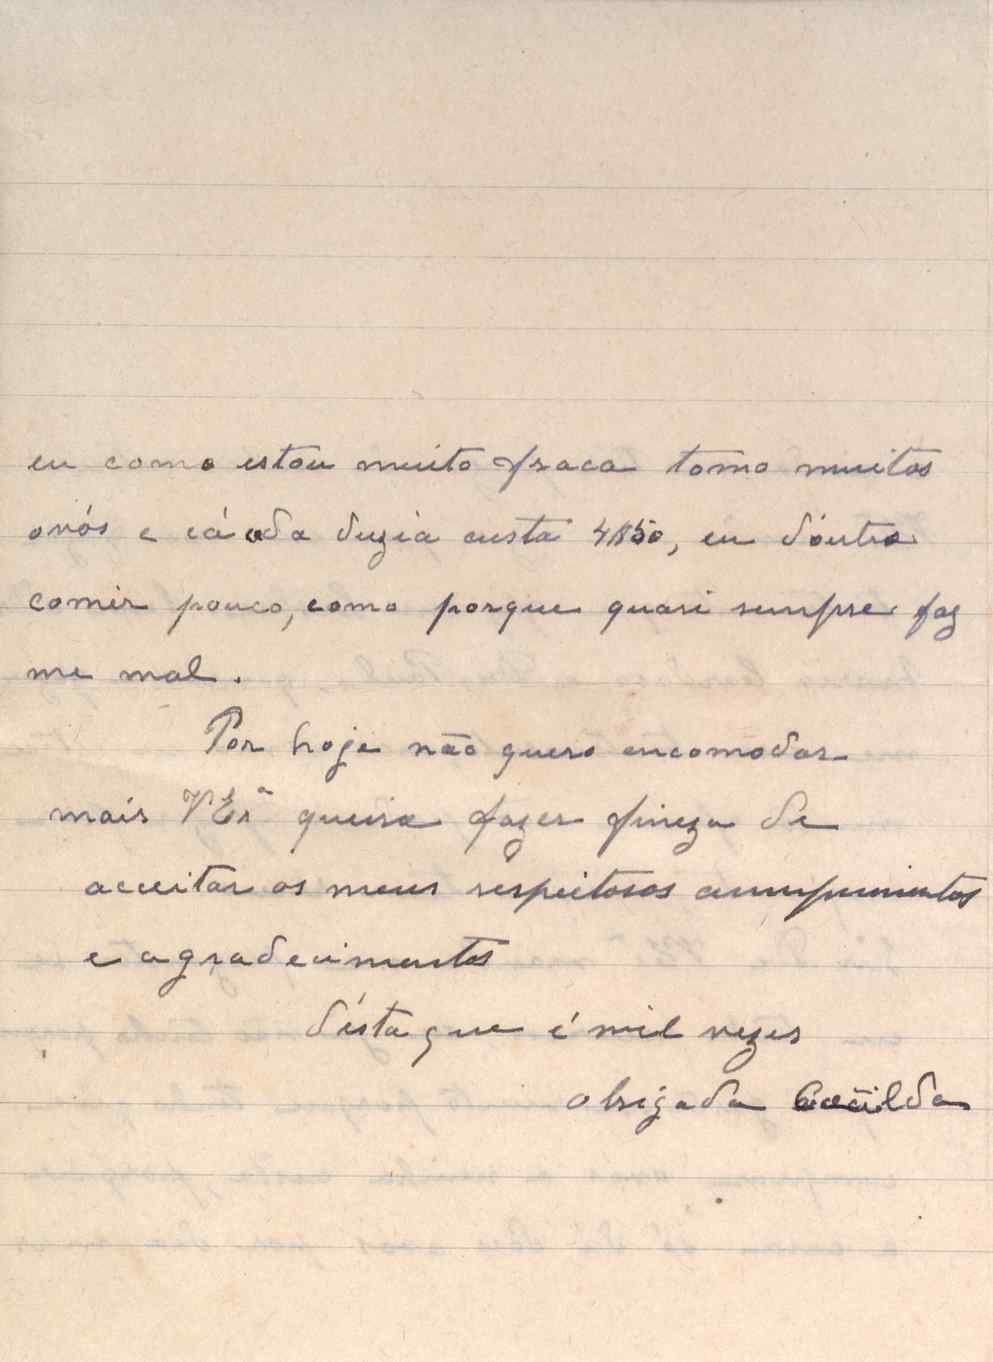 eu como estou muito fraca tomo muitos
ovós e cá ada duzia custa 4$50, eu d'outro
comêr pouco, como porque quasi sempre faz
me mal.
Por hoje não quero encomodar
mais VExª queira fazer fineza de
acceitar os meus respeitosos cumprimentos
e agradecimentos
d'ésta que é mil vezes
obrigada Cacilda